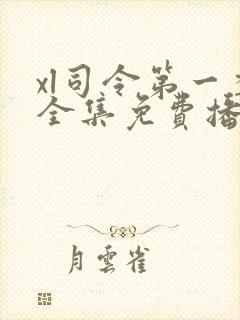 xl司令第一
全集免费播
月雲雀